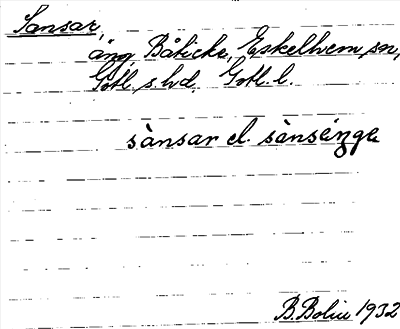 Sansar,
äng, Båticke, Eskelhem sn,
Gotl. s. hd, Gotl. l.
sànsar el. sànsäŋga
B. Bolin 1932